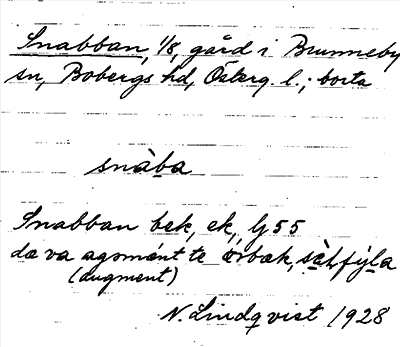 Snabban, 1/8, gård i Brunneby
sn, Bobergs hd, Österg. l.; borta
snàba
Snabban bek, ek, lj 55
da va agsmánt te örbak, sàt fýla
(augment)
N. Lindqvist 1928